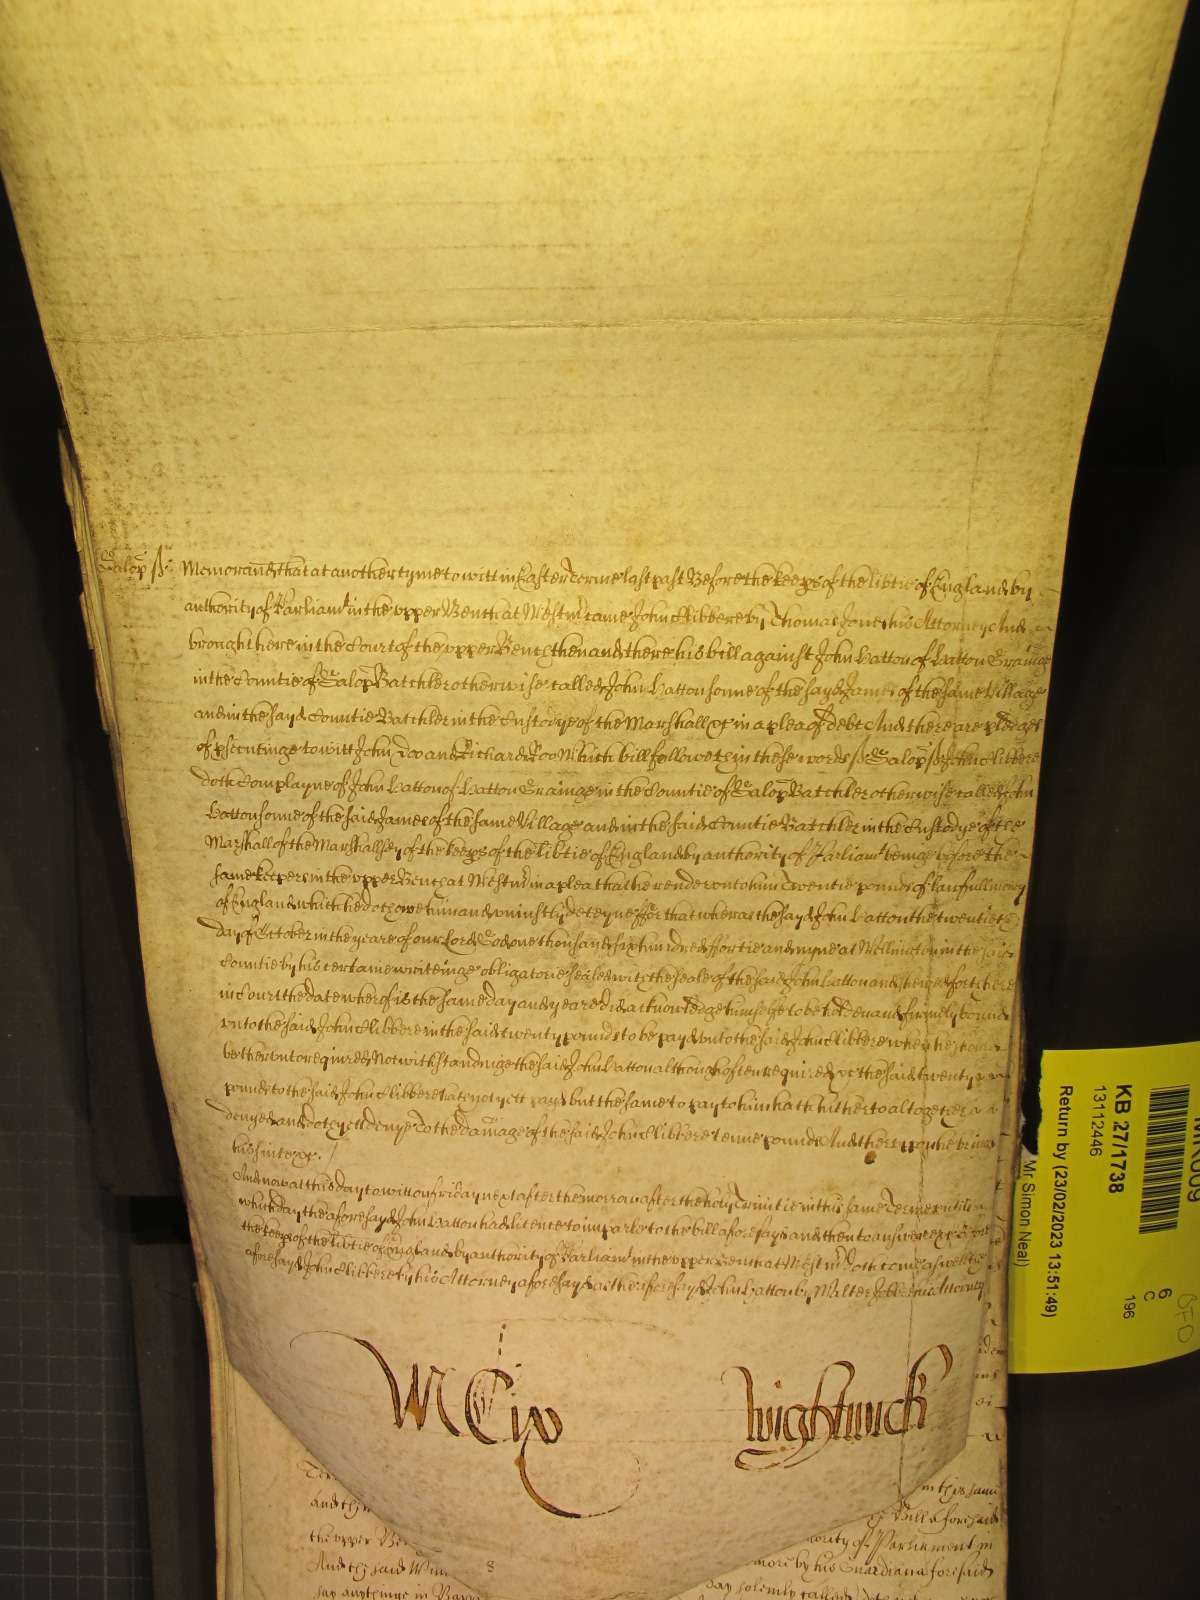 Salop ss. Memorand that at another tyme to witt in Easter Terme last past Before the keeps of the libtie of England by
authority of Parliamt in the upper Bench at Westmr came John Clibbere by Thomas Jones his Attorney And
brought here in the Court of the upper Bench then and there his bill against John Hatton of Hatton Grainge
in the Countie of Salop Batchler otherwise called John Hatton sonne of the sayd James of the same Village
and in the sayd Countie Batchler in the Custodye of the Marshall &c in a plea of debt And there are pledges
of psecutinge to witt John Doo and Richard Roo Which bill followeth in these words ss. Salop ss. John Clibbere
doth Complayne of John Hatton of Hatton Grainge in the Countie of Salop Batchler otherwise called John
Hatton sonne of the said James of the same Village and in the said Countie Batchler in the Custodye of the
Marshall of the Marshallsey of the keeps of the libtie of England by authority of Parliamt beinge before the
same keepers in the upper Bench at Westmr in a plea that he render unto him Twentie pounds of lawfull mony
of England which he doth owe him and uniustly deteyneth For that whereas the sayd John Hatton the twentieth
day of October in the yeare of our Lord God one thousand six hundred fortie and nyne at Wellington in the said
Countie by his certaine writeinge obligatorie sealed with the seale of the said John Hatton and shewed forth here
in Court the date wherof is the same day and yeare did acknowledge himselfe to be holden and firmely bound
unto the said John Clibbere in the said twenty pounds to be payd unto the said John Clibbere when he should
be therunto required Notwithstandinge the said John Hatton although often required &c the said twenty
pounds to the said John Clibbere hath not yett payd but the same to pay to him hath hitherto altogether
denyed and doth yett denye To the damage of the said John Clibbere tenne pounds And thereupon he brings
his suite &c.
And now at this day to witt on friday next after the morrow after the holy Trinitie in this same Terme untill
which day the aforesayd John Hatton had licence to imparle to the bill aforesayd and then to answere &c Before
the keeps of the libtie of England by authority of Parliamt in the upper Bench at Westmr doth come aswell the
aforesayd John Clibbere by his Attorney aforesayd as the aforesayd John Hatton by Walter his Attorney
M Cix Wightwick
in this same
And th
Bill aforesaid
the upper Be
Parliament in
And th said
by his Guardian aforesaid
say anythinge in
day solemly called
KB 27/1738
13112446
Return by (23/02/2023 13:51:49)
Mr. Simon Neal)
6
C
196